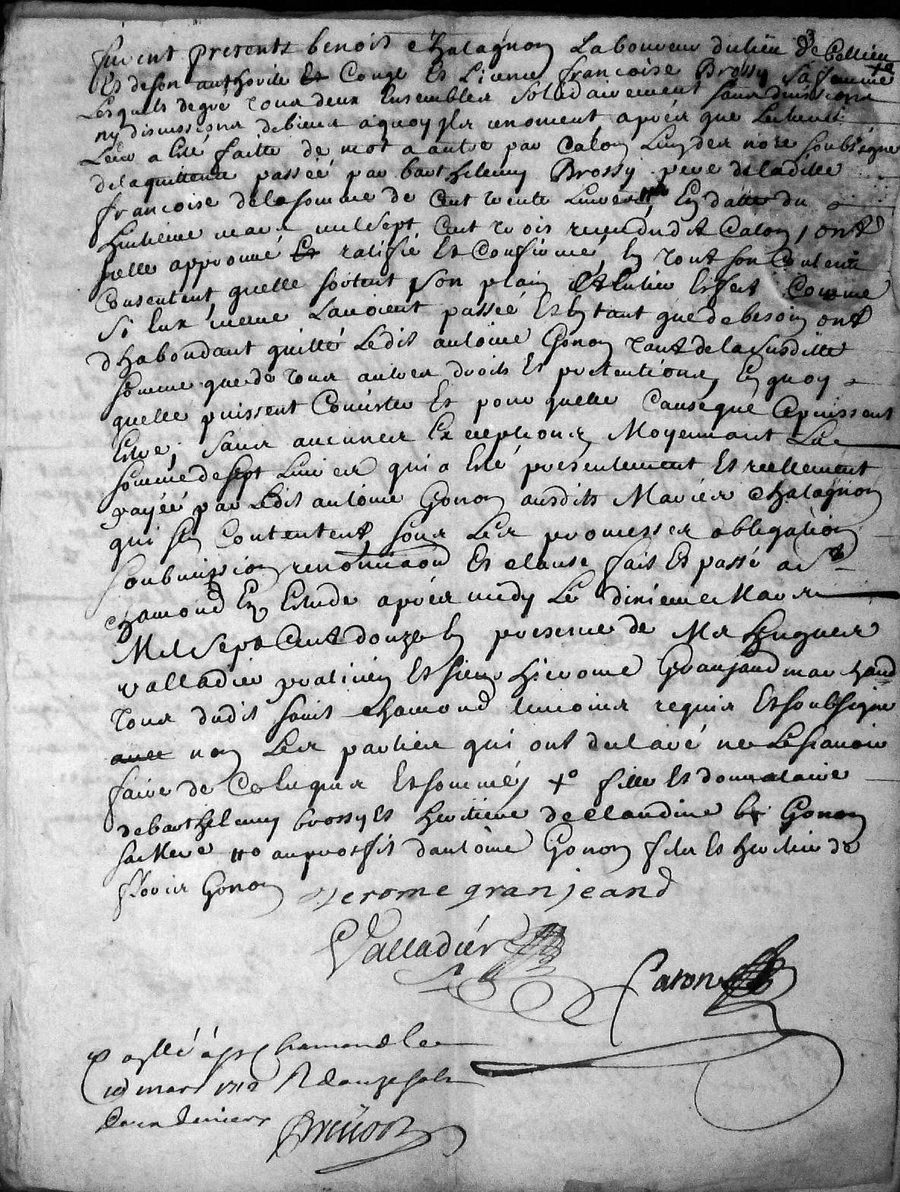 furent presents benois chatagnon Laboureur du lieu de Cellieu
Et de son authorite Et Congé Et Licence francoise Brossy sa femme
Lesquels de gré tous deux Ensembles solidairement sans division
ny discussions de biens a quoy ils renoncent apres que Lecture
Leur a Esté faitte de mot a autre par Caton Luyder nore soubsigné
de la quittance passée par barthelemy Brossy pere de laditte
francoise de la somme de Cent trente Livres En datte du
huitieme mars mil sept Cent trois receu dudit Caton, ont
Icelle approuvé Et ratifié Et Confirmé En tout son Contenu
Consentent quelle sortent son plain Et Entier Effect Comme
Si Eux meme Lavoient passée Et En tant que de besoin ont
d'habondant quitté Ledit antoine Gonon tant de la susditte
somme que de tous autres droits Et pretentions En quoy
quelle puissent Consister Et pour quelle Cause que Ce puissent
Estre, sans aucunes Exceptions Moyennant La
somme de sept Livres qui a Esté presentement Et reellement
payée par Ledit antoine Gonon ausdits Mariés Chatagnon
qui s'En Contentent, sous Les promesses obligation
soubmission renonciaon Et clause fait Et passé a St
chamond En Estude apres midy Le dixieme Mars
Mil sept Cent douze En presence de Mr hugues
valladier praticien Et sieur hierome Granjand marchand
tous dudit saint chamond temoins requis Et soubsigne
avec non Les parties qui ont declaré ne Le scavoir
faire de Ce Enquis Et sommés +o fille Et donnataire
de barthelemy brossy Et heritiere de claudine Gonon
sa Mere #o au proffit d'antoine Gonon fils Et heritier de
flories Gonon
Jerome granjeand
Valladier
Caton
Conllé a St Chamond le
10 mars 1712 R douze sols